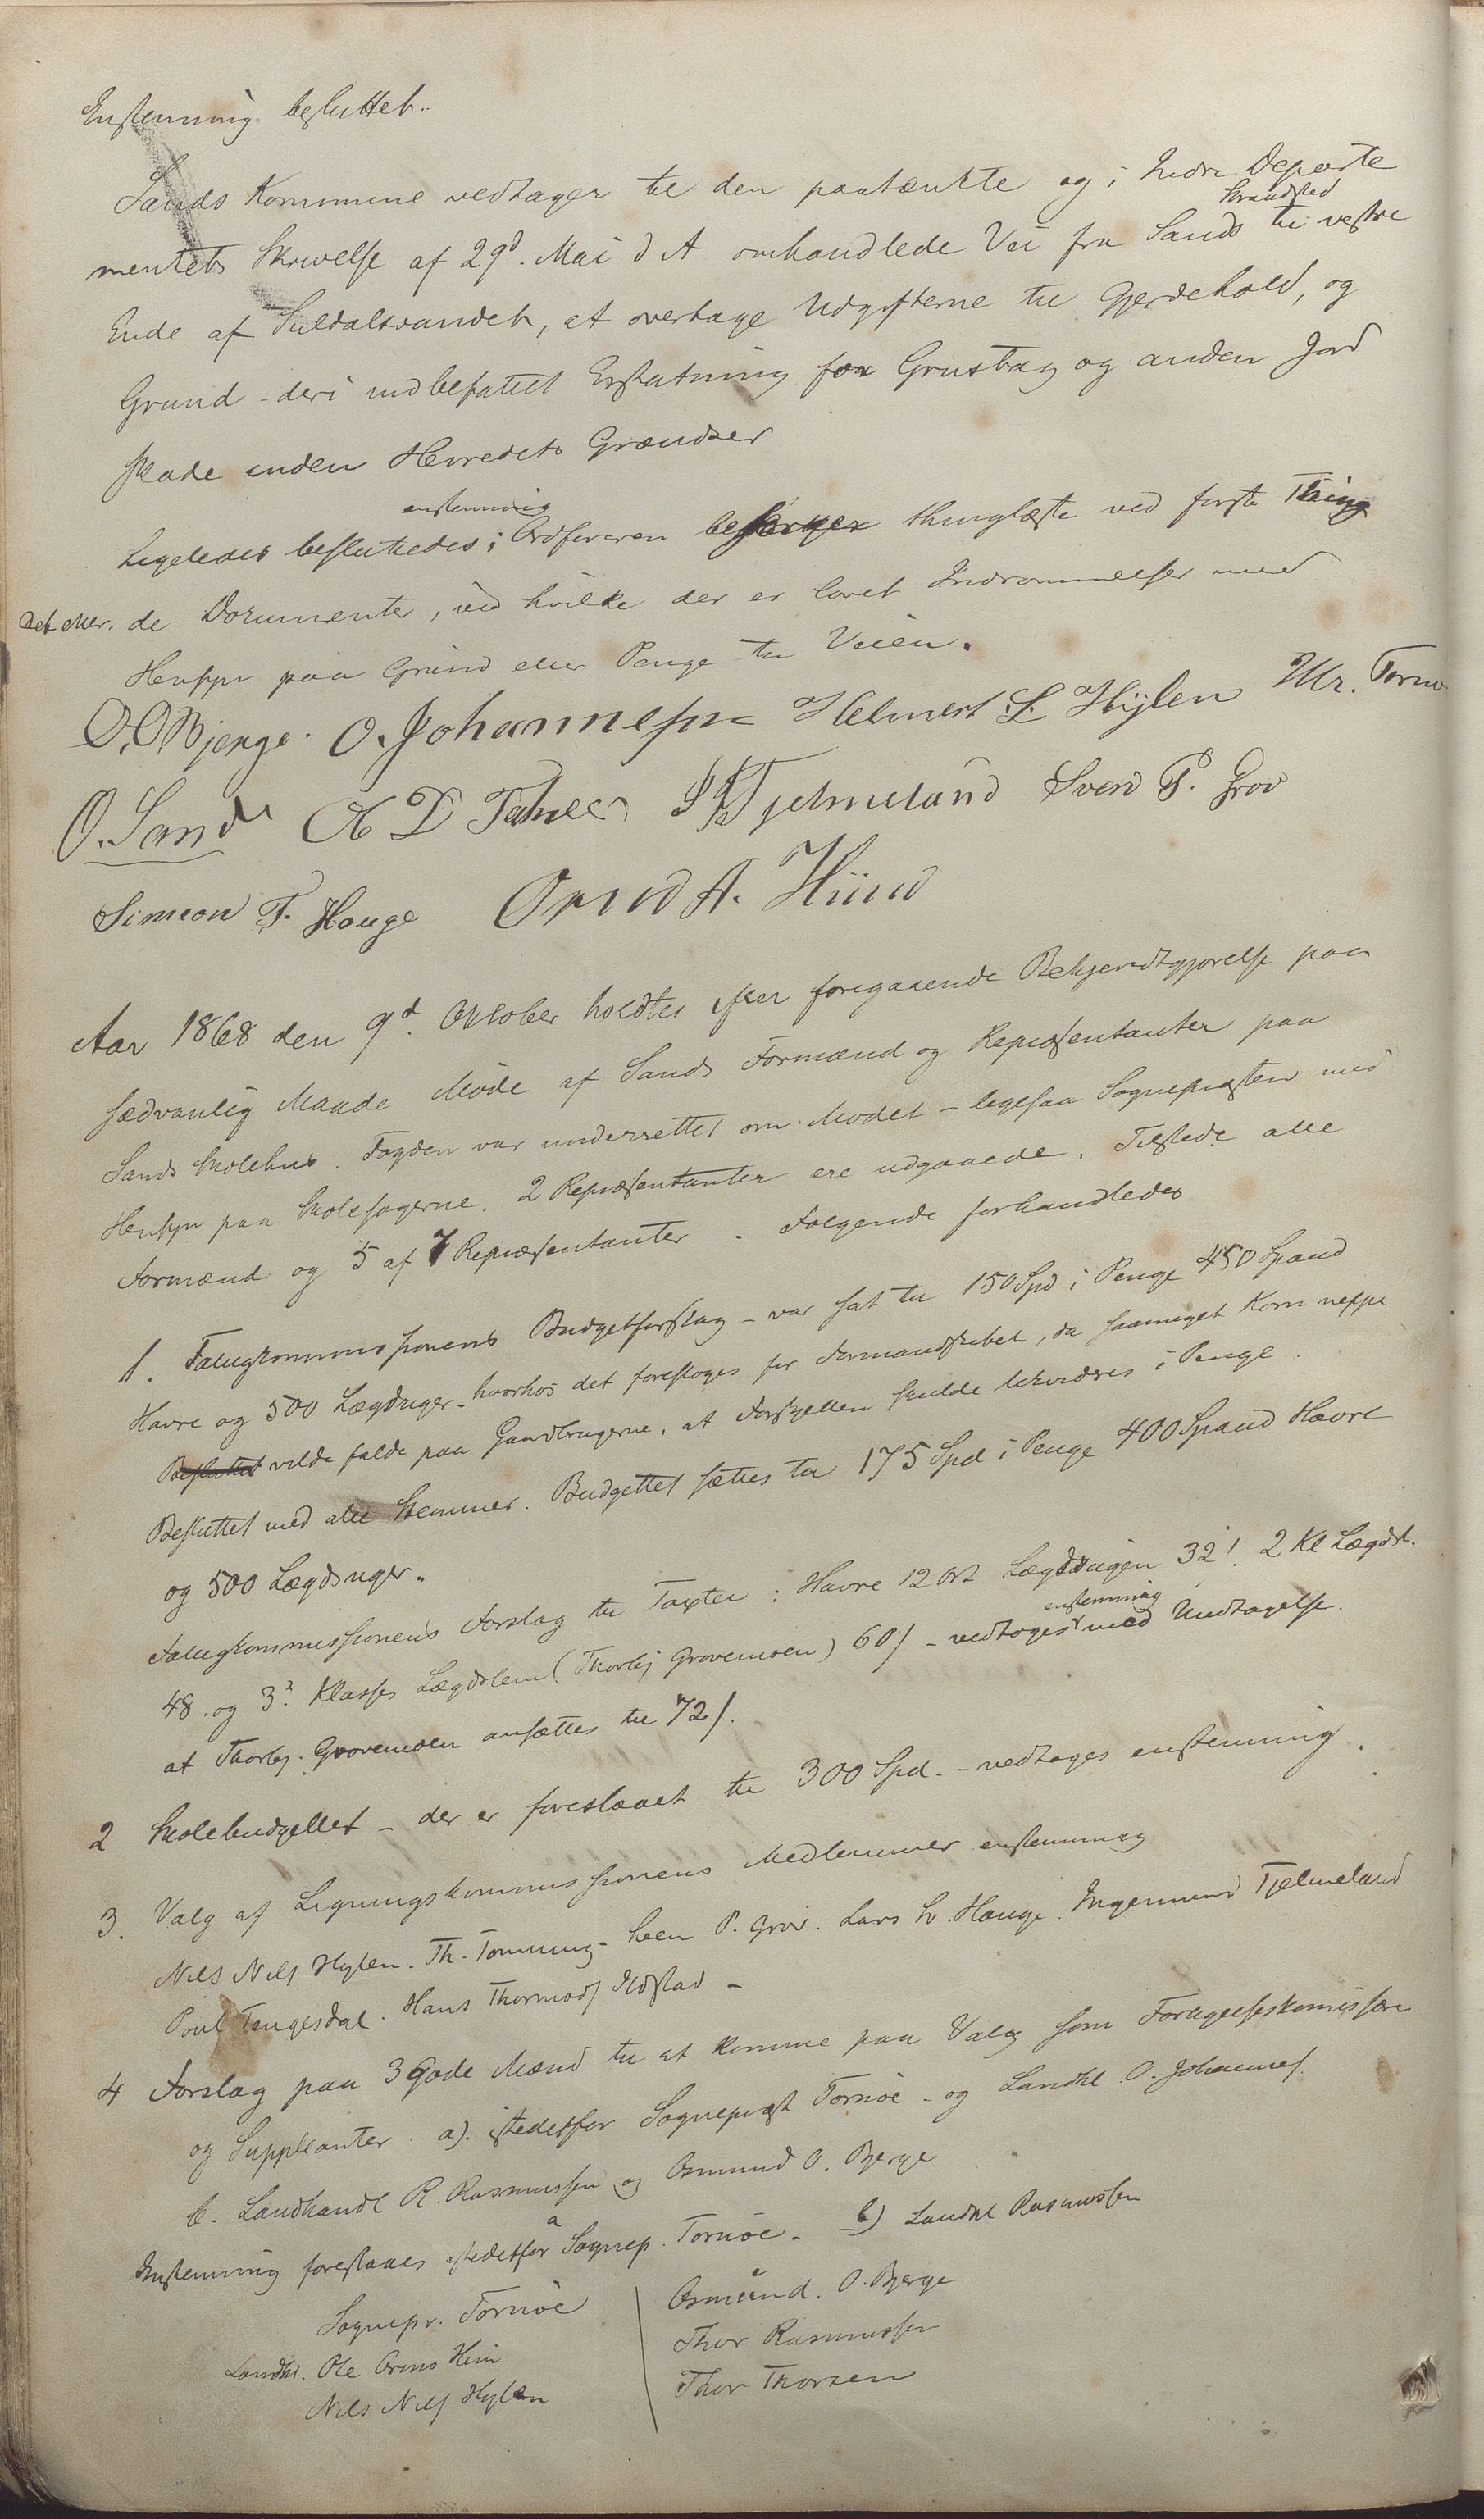 Enstemmig besluttet..
Sands Kommune vedtager til den paatænkte og i Indre Departe
Strandsted
mentets Skrivelse af 29d. Mai d A omhandlede Vei fra Sands til vestre
Ende af Suldalsvandet, at overtage Udgifterne til Gjerdehold, og
Grund - deri indbefattet Erstatning for Grustag og anden Jord
skade inden Herredets Grændser
enstemmig
Ligeledes besluttedes; Ordføreren besørger thinglæste ved første Thing
de Dokumenter, ved hvilke der er lovet Indrømmelser med
Hensyn paa Grund eller Penge til Veien.
O. O Bjerge. O. Johannessen Helmert L Hylen Mr. Tornø
O. Sand Tjelmeland Sven P. Grov
Simeon T. Houge Ormd A. Hiim
Aar 1868 den 9d. Oktober holdtes efter foregaaende Bekjendtgjørelse paa
sædvanlig Maade Møde af Sands Formænd og Repræsentanter paa
Sands Skolehus. Fogden var underrettet om Mødet - ligesaa Sognepræsten med
Hensyn paa Skolesagerne. 2 Repræsentanter ere udgaaede. Tilstede alle
Formænd og 5 af 7 Repræsentanter. Følgende forhandledes
1. Fattigkommissionens Budgetforslag - var sat til 150 Spd i Penge 450 Spand
Havre og 500 Lægdsuger - hvorhos det foresloges for Formandskabet, da saameget Korn neppe
Besluttet vilde falde paa Gaardbrugerne, at Forskjellen skulde likvideres i Penge.
Besluttet med alle Stemmer. Budgettet sættes til 175 Spd i Penge 400 Spand Havre
og 500 Lægdsuger.
Fattigkommissionens Forslag til Taxter: Havre 12 ort Lægdsugen 32 ! 2 Kl Lægdsl.
enstemmig
48. og 3? Klasses Lægdslem (Thorbj Grovemoen) 60 / - vedtoges med Undtagelse.
at Thorbj. Grovemoen ansættes til 72 /.
2 Skolebudgettet - der er foreslaaet til 300 Spd. - vedtoges enstemmig.
3. Valg af Ligningskommissionens Medlemmer enstemmig
Nils Nils Hylen. Th. Tomming. Sven P. Grov. Lars L. Hauge. Ingemund Tjelmeland
Poul Tengesdal. Hans Thormods
4 Forslag paa 3 Gode Mænd til at komme paa Valg som Forligelseskomissære
og Suppleanter. a). istedetfor Sognepræst Tornøe - og Landhl. O. Johannes.
b. Landhandl R. Rasmussen og Osmund O. Bjerge
Enstemmig foreslaaes istedetfor a Sognep. Tornøe. b) Landhl Rasmussen
Sognepr. Tornöe | Osmund. O. Bjerge
Landhl. Ole Orms Hiim | Thor Rasmussen
Nils Nils Hylen | Thor Thorsen